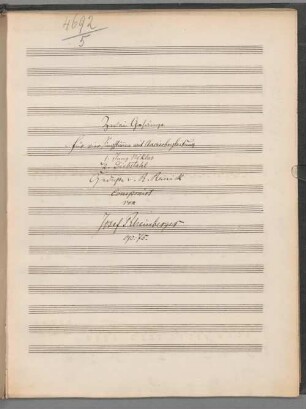 4692
5
Zwei Gesänge
für eine Singstimme mit Clavierbegleitung
1. Jung Niklas
2.
Gedichte v. R. Reinick
componirt
von
Josef Rheinberger
op. 75.